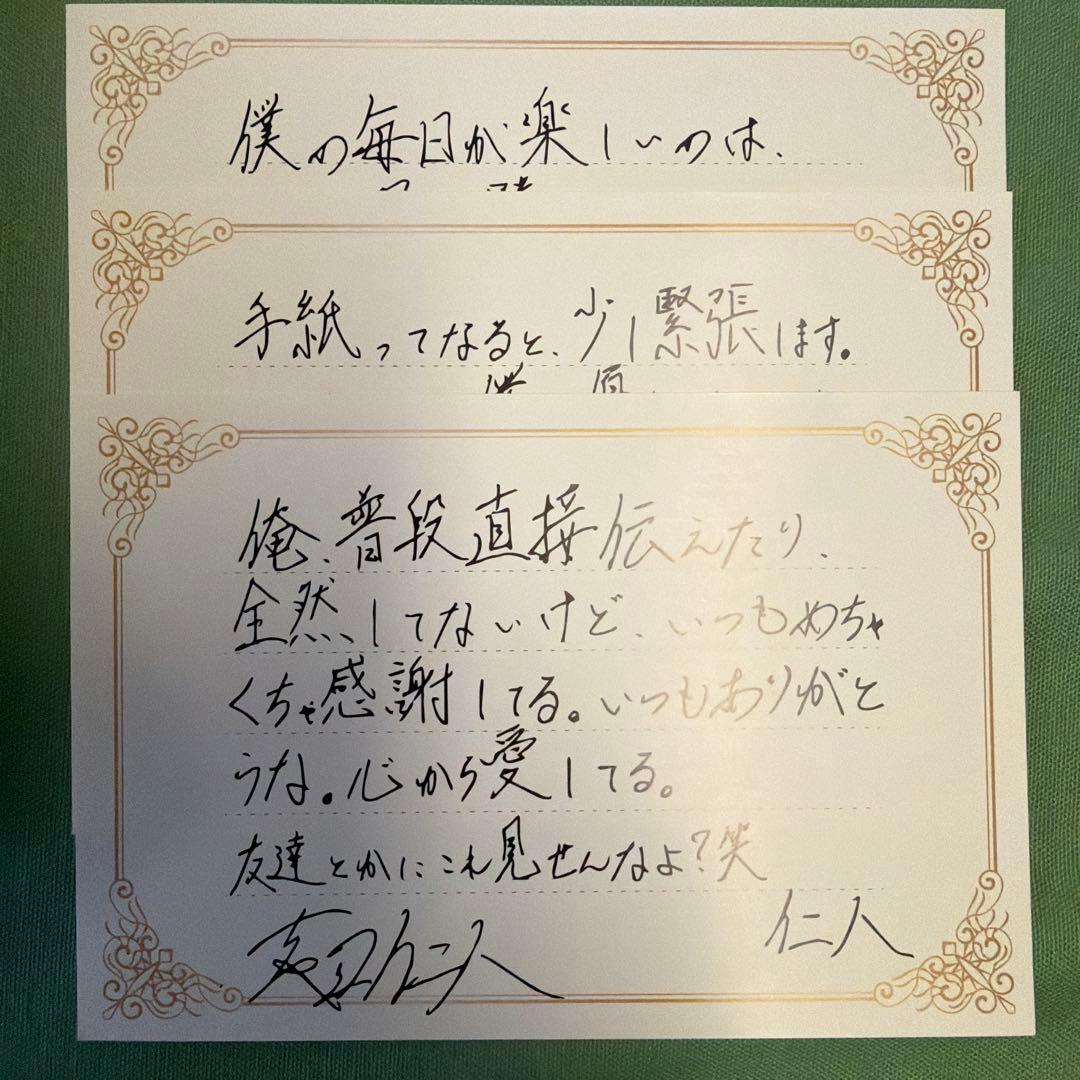 僕の毎日が楽しいのは、
手紙ってなると、少し緊張します。
俺、普段直接伝えたり、
全然してないけど、いつもめちゃ
くちゃ感謝してる。いつもありがと
うな。心から愛してる。
友達とかにこれ見せんなよ?笑
仁人